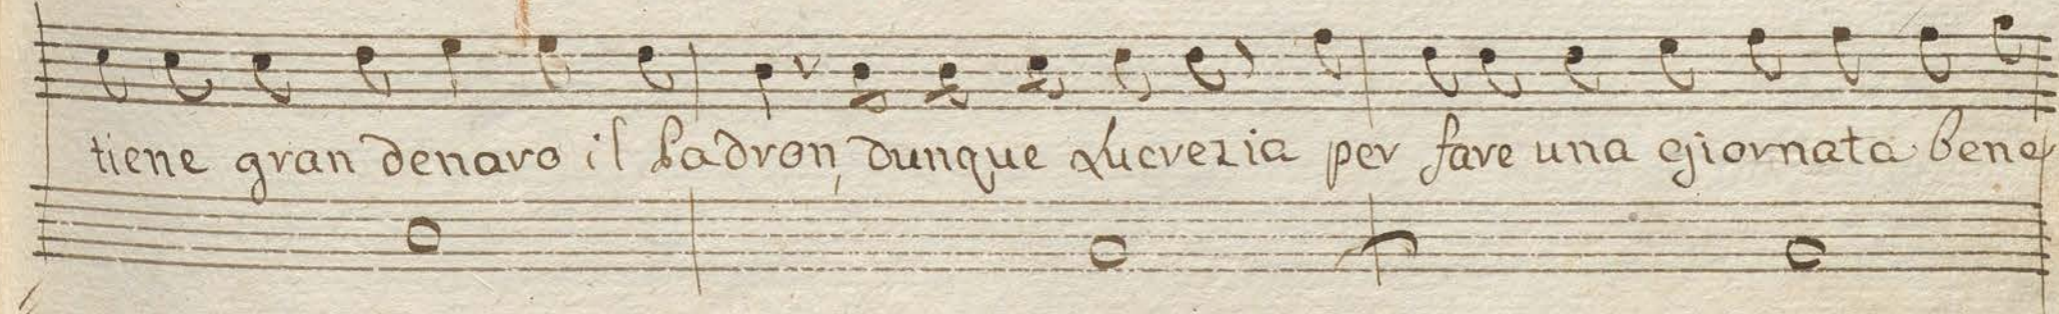 tiene gran denaro il Padron, dunque Lucrezia per fare una giornata bene